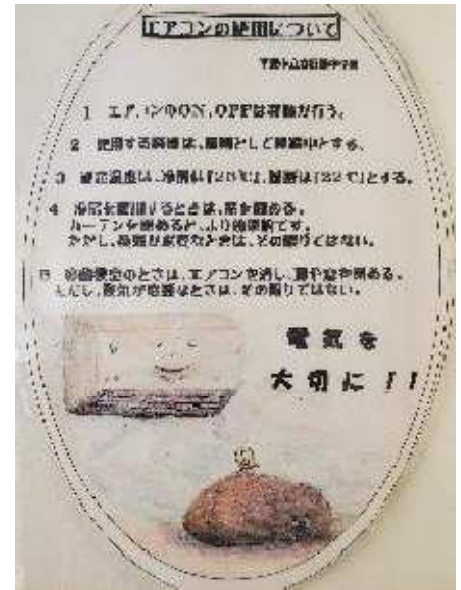 エアコンの使用について
1 エアコンのON,OFFは 行う。
2 使用する 、原則として とする。
3 設定温度は、冷房は「28℃」、暖房は「22℃」とする。
4 冷房を使用するときは、窓を閉める。
カーテンを閉めると、より効果的です。
ただし、換気が必要なときは、その限りではない。
5 のときは、エアコンを消し、 窓を閉める。
ただし、換気が必要なときは、その限りではない。
電気を
大切に!!